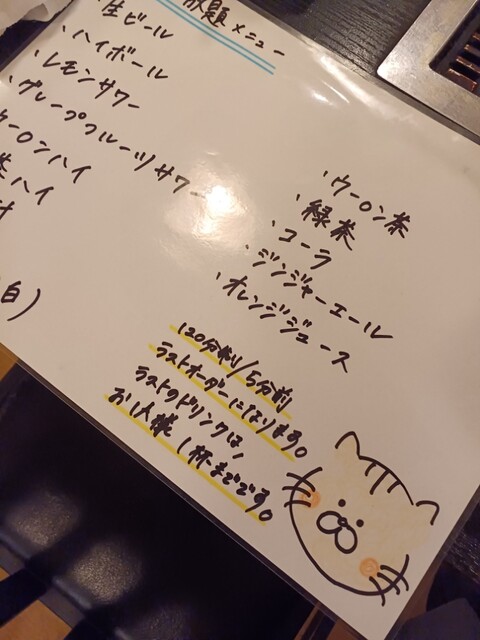 放題メニュー
・生ビール
・ハイボール
・レモンサワー
・グレープフルーツサワー
ウーロンハイ
茶ハイ
白)
・ウーロン茶
・緑茶
・コーラ
・ジンジャーエール
・オレンジジュース
120分制/5分前
ラストオーダーになります。
ラストのドリンクは、
お1人様1杯までです。